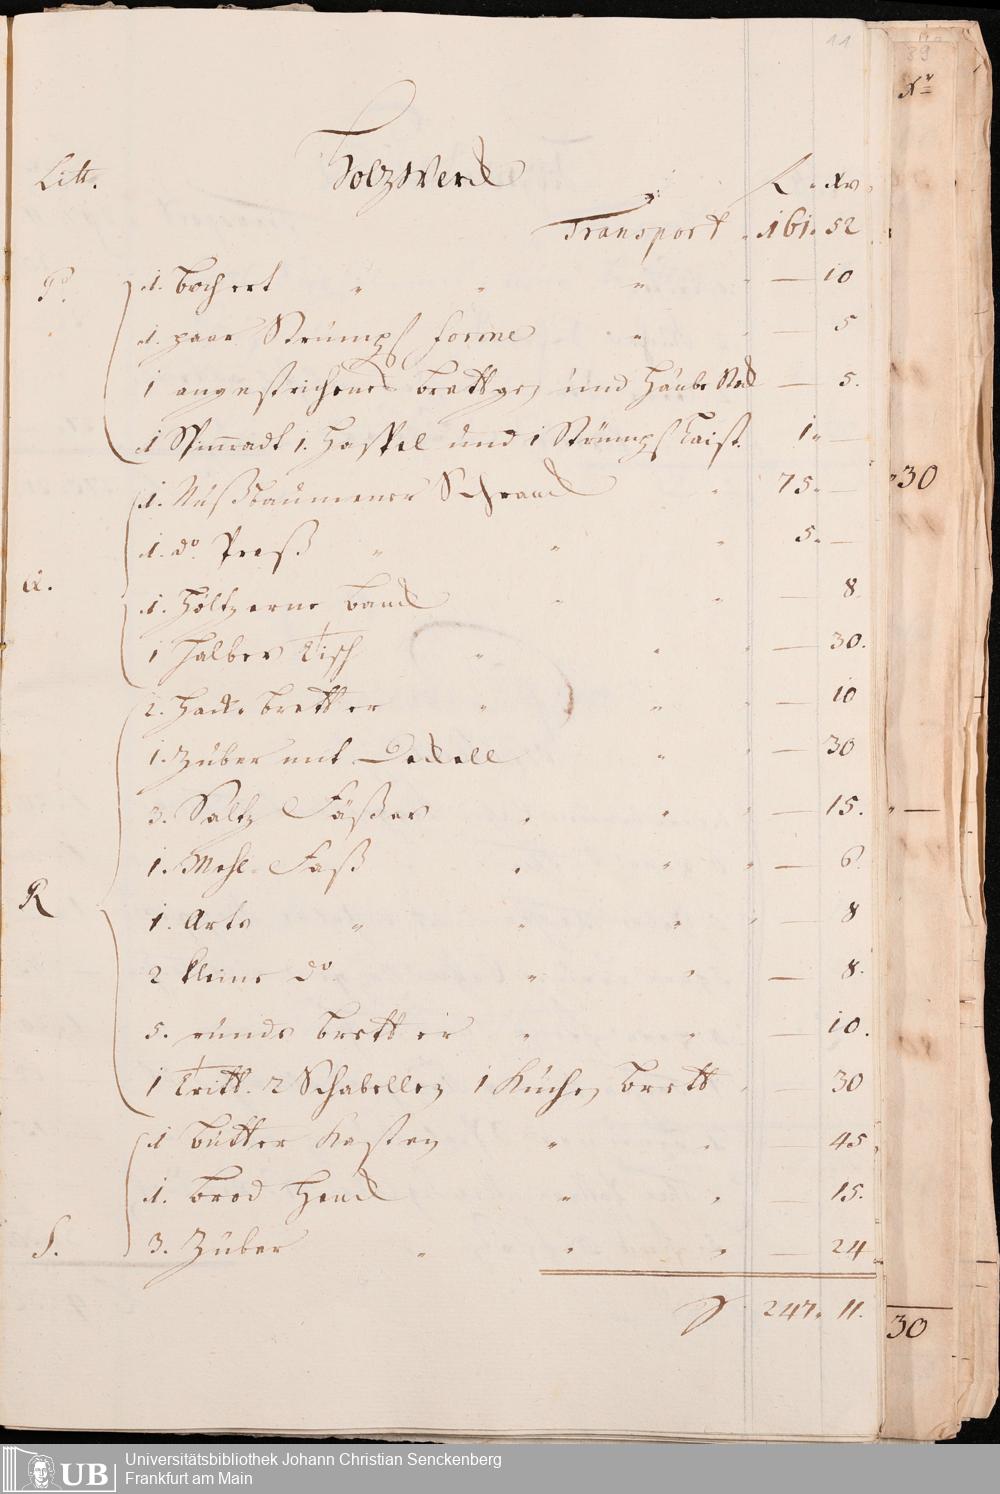 11
39
Xr
Litt. Holzwerck f. Xr
Transport 161. 52
P. 1. Bochert — 10
1. paar Strümpf forme — 5
1 angestrichenes Brettgen und Haube — 5.
1 Spinnradt 1. Haspel und 1 Strümpf 1. —
1. Nußbaumener Schranck 75. —
30
1. do. Preß 5. —
Q. 1. Höltzerne Banck — 8
1 halber Tisch — 30.
2. Hack Bretter — 10
1. Zuber mit Deckell — 30
3. Saltz Fäßer — 15.
1. Mehl Faß — 6
R 1. — 8
2 kleine do — 8.
5. runde Bretter — 10.
1 Tritt. 2 Schabellen 1 Küchen Brett 30
1 Butter Kasten 45
1. Brod Henck — 15.
S. 3. Züber — 24
247. 11.
30
UB
Universitätsbibliothek Johann Christian Senckenberg
Frankfurt am Main